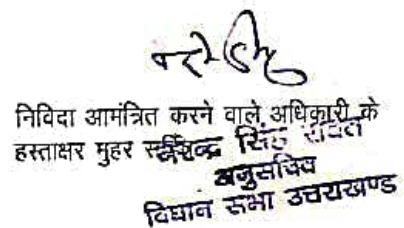 निविदा आमंत्रित करने वाले अधिकारी के
हस्ताक्षर मुहर
सिंह रावत
अनुसचिव
विधान सभा उत्तराखण्ड